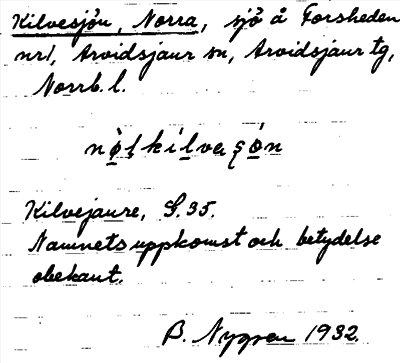 Kilvesjön, Norra, sjö å Forsheden
nr 1, Arvidsjaur sn, Arvidsjaur tg,
Norrb. l.
Kilvejaure, G. 35.
Namnets uppkomst och betydelse
obekant.
B. Nygren 1932.